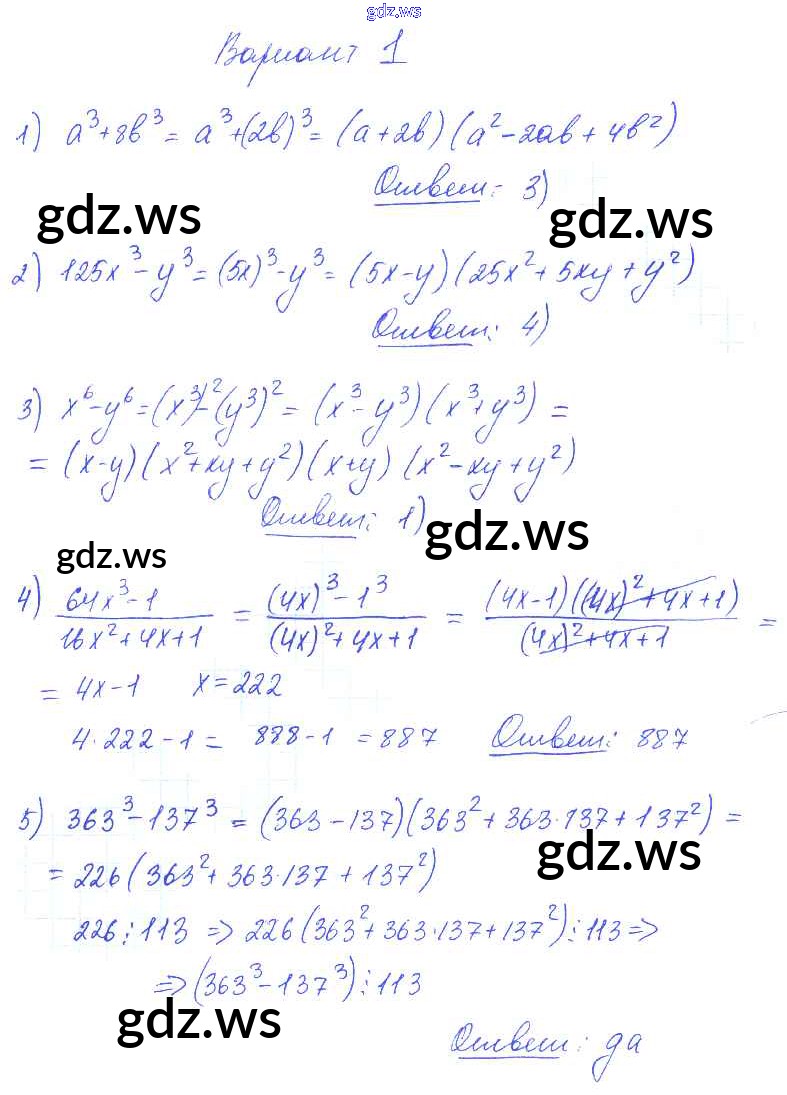 gdz.ws
Вариант 1
1) a³+8b³ = a³+(2b)³ = (a+2b)(a²-2ab+4b²)
Ответ: 3)
gdz.ws gdz.ws
2) 125x³-y³ = (5x)³-y³ = (5x-y)(25x²+5xy+y²)
Ответ: 4)
3) x⁶-y⁶ = (x³)²-(y³)² = (x³-y³)(x³+y³) =
= (x-y)(x²+xy+y²)(x+y)(x²-xy+y²)
Ответ: 1)
gdz.ws
gdz.ws
4) (64x³-1)/(16x²+4x+1) = ((4x)³-1³)/((4x)²+4x+1) = ((4x-1)((4x)²+4x+1))/((4x)²+4x+1) =
= 4x-1 x=222
4·222-1 = 888-1 = 887 Ответ: 887
5) 363³-137³ = (363-137)(363²+363·137+137²) =
gdz.ws
= 226(363²+363·137+137²)
226⋮113 ⇒ 226(363²+363·137+137²)⋮113 ⇒
⇒ (363³-137³)⋮113
gdz.ws
Ответ: да